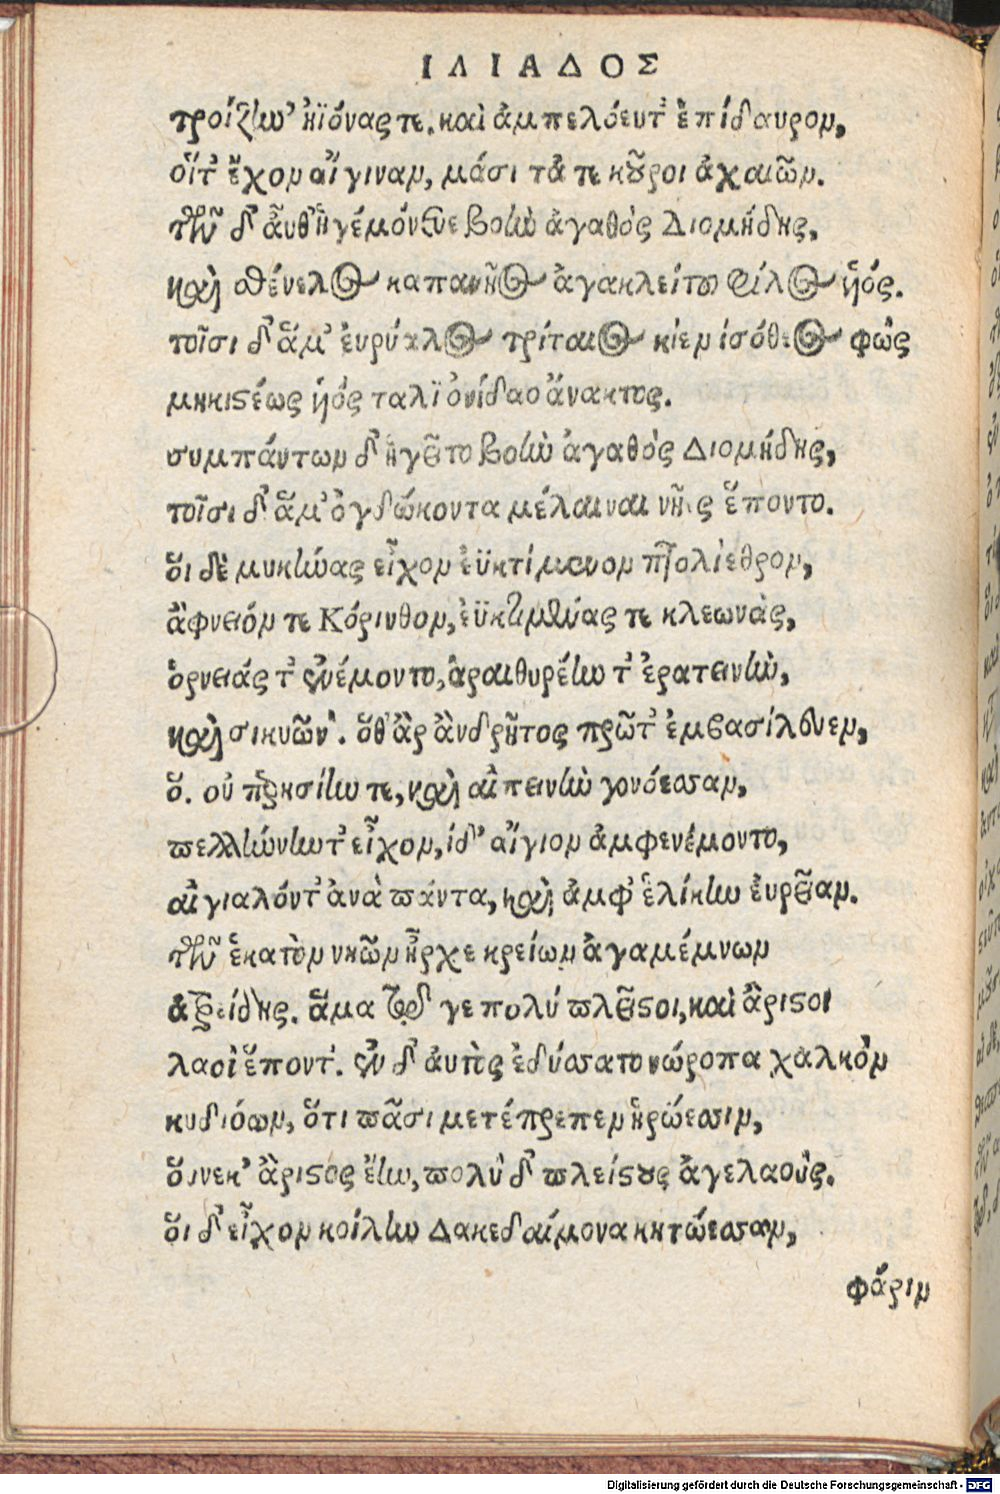 ΙΛΙΑΔΟΣ
τροίζην' ἠϊόνας τε. καὶ ἀμπελόεντ' ἐπίδαυρον,
οἵ τ' ἔχον αἴγιναν, μάσιτά τε κοῦροι ἀχαιῶν.
τῶν δ' αὖθ' ἡγεμόνευε βοὴν ἀγαθὸς Διομήδης,
καὶ σθένελος καπανῆος ἀγακλείτου φίλος ὑιός.
τοῖσι δ' ἅμ' ἐυρύαλος τρίτατος κίεν ἰσόθεος φὼς
μηκιστέως ὑιός ταλϊονίδαο ἄνακτος.
συμπάντων δ' ἡγεῖτο βοὴν ἀγαθὸς Διομήδης,
τοῖσι δ' ἅμ' ὀγδώκοντα μέλαιναι νῆες ἕποντο.
ὅι δὲ μυκήνας εἶχον ἐϋκτίμενον πτολίεθρον,
ἀφνειόν τε Κόρινθον, ἐϋκτιμένας τε κλεωνὰς,
ὀρνειάς τ' ἐνέμοντο, ἀραιθυρέην τ' ἐρατεινὴν,
καὶ σικυῶν'. ὅθ' ἂρ ἄνδρηστος πρῶτ' ἐμβασίλευεν,
ὅι θ' ὑπερησίην τε, καὶ αἰπεινὴν γονόεσσαν,
πελλήνην τ' εἶχον, ἰδ' αἴγιον ἀμφενέμοντο,
αἰγιαλόν τ' ἀνὰ πάντα, καὶ ἀμφ' ἑλίκην ἐυρεῖαν.
τῶν ἑκατὸν νηῶν ἦρχε κρείων ἀγαμέμνων
ἀτρείδης. ἅμα τῷδε γε πολὺ πλεῖστοι, καὶ ἄριστοι
λαοὶ ἕποντ'. ἐν δ' ἀυτὸς ἐδύσατο νώροπα χαλκὸν
κυδιόων, ὅτι πᾶσι μετέπρεπεν ἡρώεσσιν,
ὅυνεκ' ἄριστος ἔην, πολὺ δ' πλείστους ἄγε λαοὺς.
ὅι δ' εἶχον κοίλην Λακεδαίμονα κητώεσσαν,
φάριν
Digitalisierung gefördert durch die Deutsche Forschungsgemeinschaft - DFG